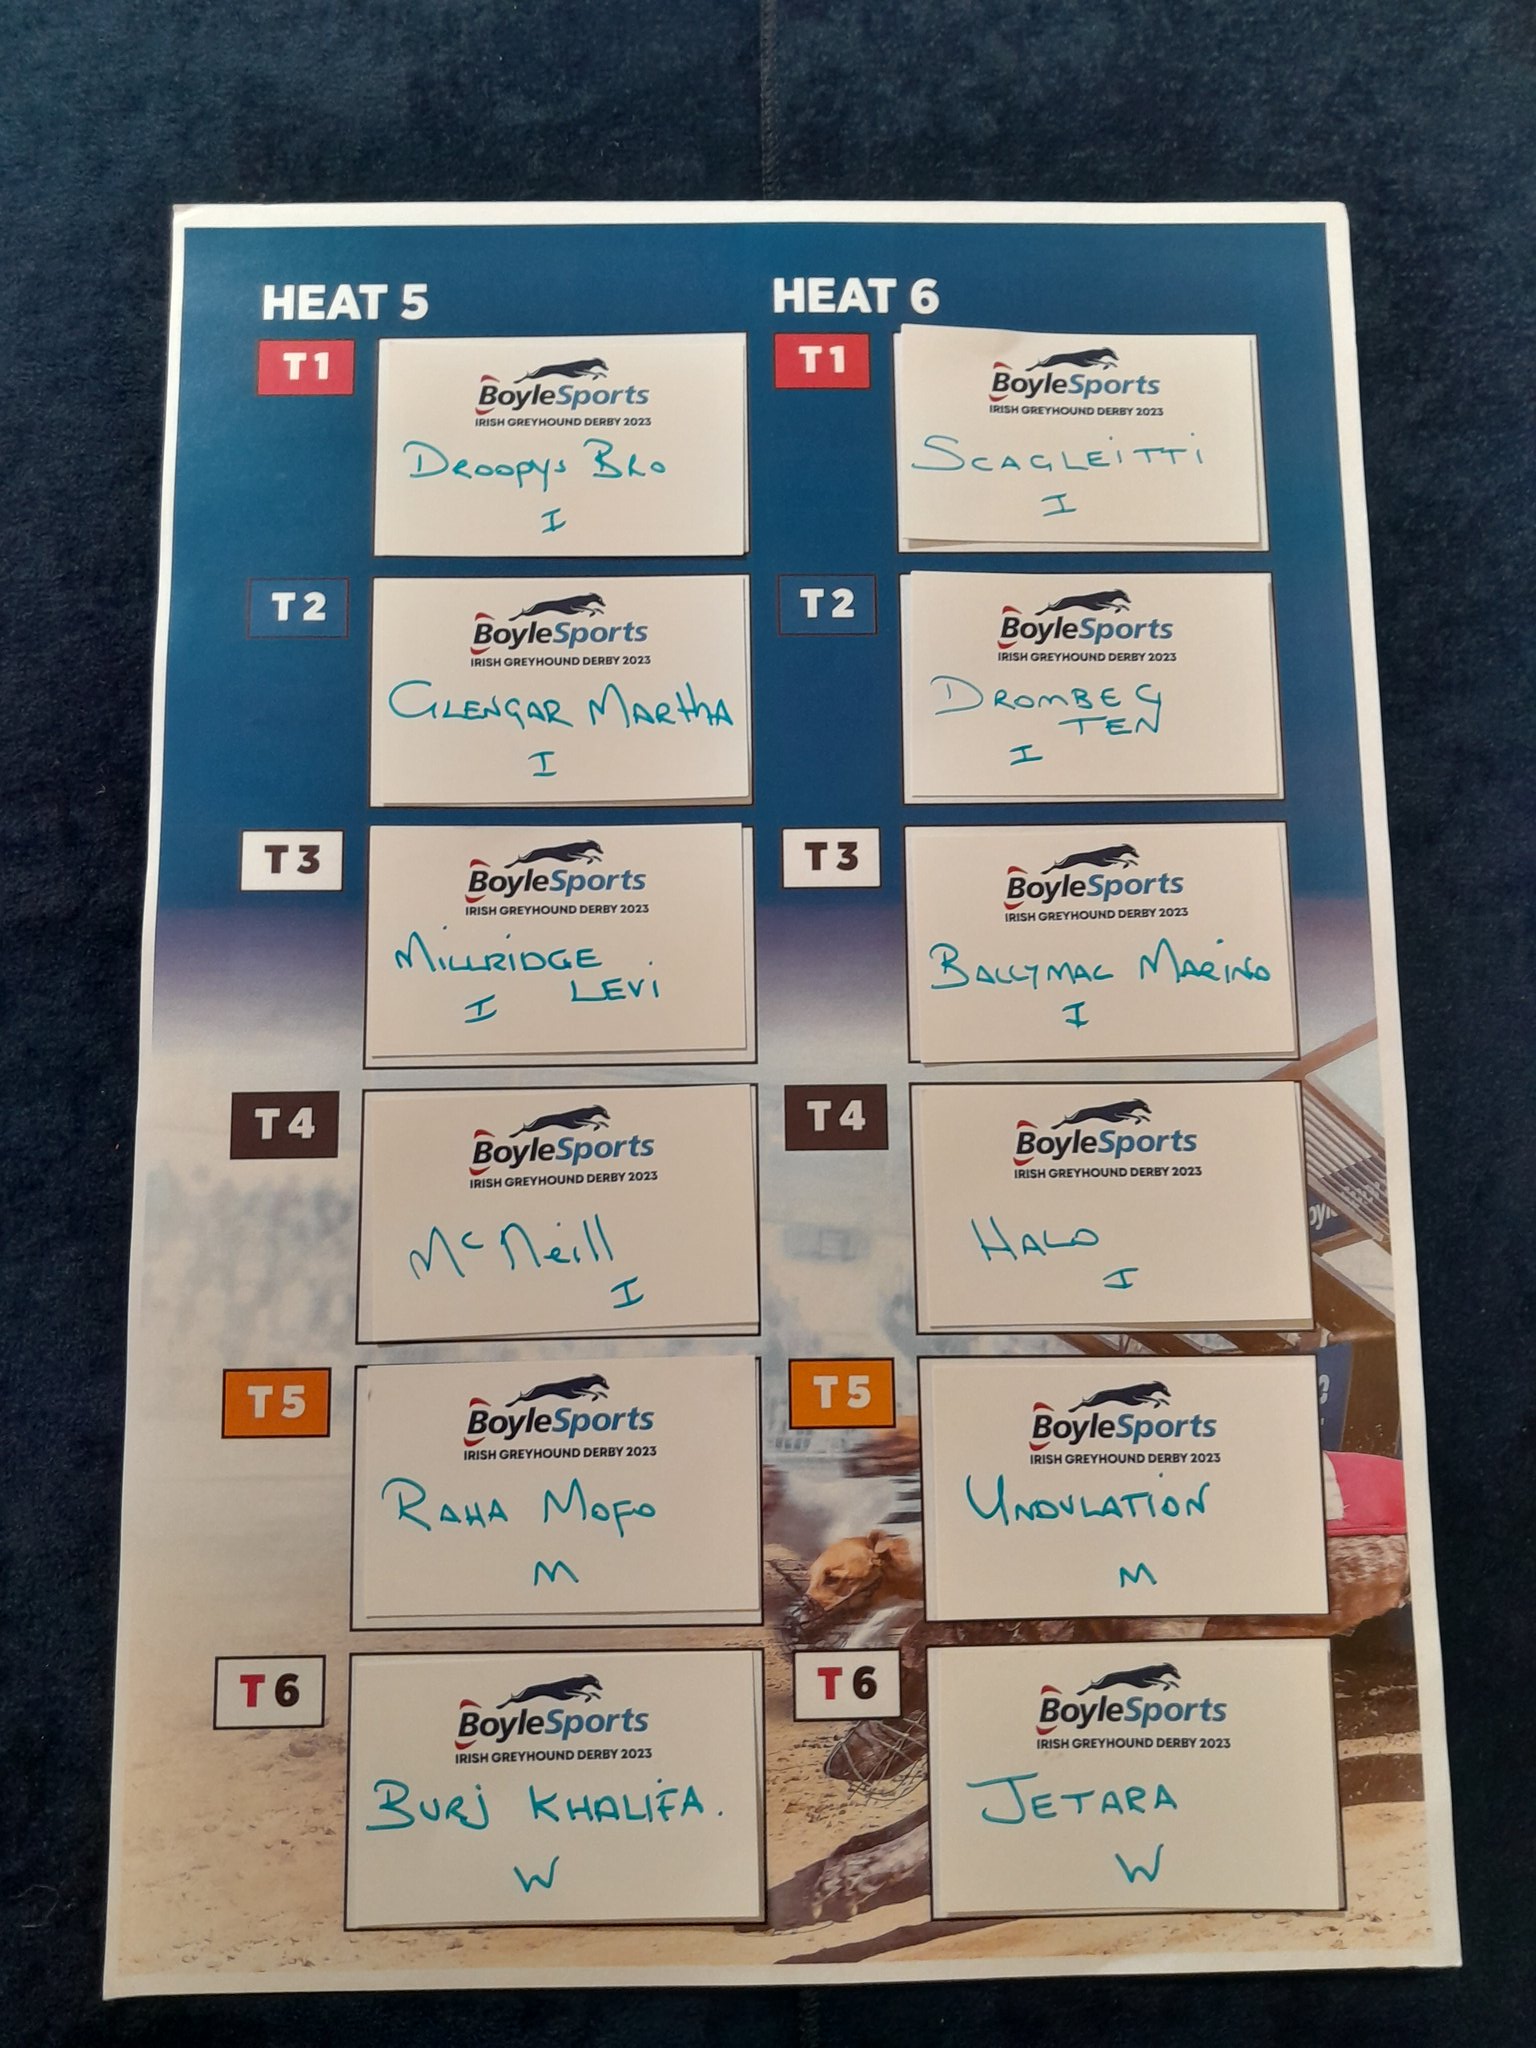 HEAT 5
T1
BoyleSports
IRISH GREYHOUND DERBY 2023
Droopys Bro
I
T2
BoyleSports
IRISH GREYHOUND DERBY 2023
GLENGAR MARTHA
I
T3
BoyleSports
IRISH GREYHOUND DERBY 2023
MILLRIDGE
LEVI
I
T4
BoyleSports
IRISH GREYHOUND DERBY 2023
McNeill
I
T5
BoyleSports
IRISH GREYHOUND DERBY 2023
RAHA MOFO
M
T6
BoyleSports
IRISH GREYHOUND DERBY 2023
BURJ KHALIFA.
W
HEAT 6
T1
BoyleSports
IRISH GREYHOUND DERBY 2023
SCAGLEITTI
I
T2
BoyleSports
IRISH GREYHOUND DERBY 2023
DROMBEG
TEN
I
T3
BoyleSports
IRISH GREYHOUND DERBY 2023
BALLYMAC MARINO
I
T4
BoyleSports
IRISH GREYHOUND DERBY 2023
HALO
I
T5
BoyleSports
IRISH GREYHOUND DERBY 2023
UNDULATION
M
T6
BoyleSports
IRISH GREYHOUND DERBY 2023
JETARA
W